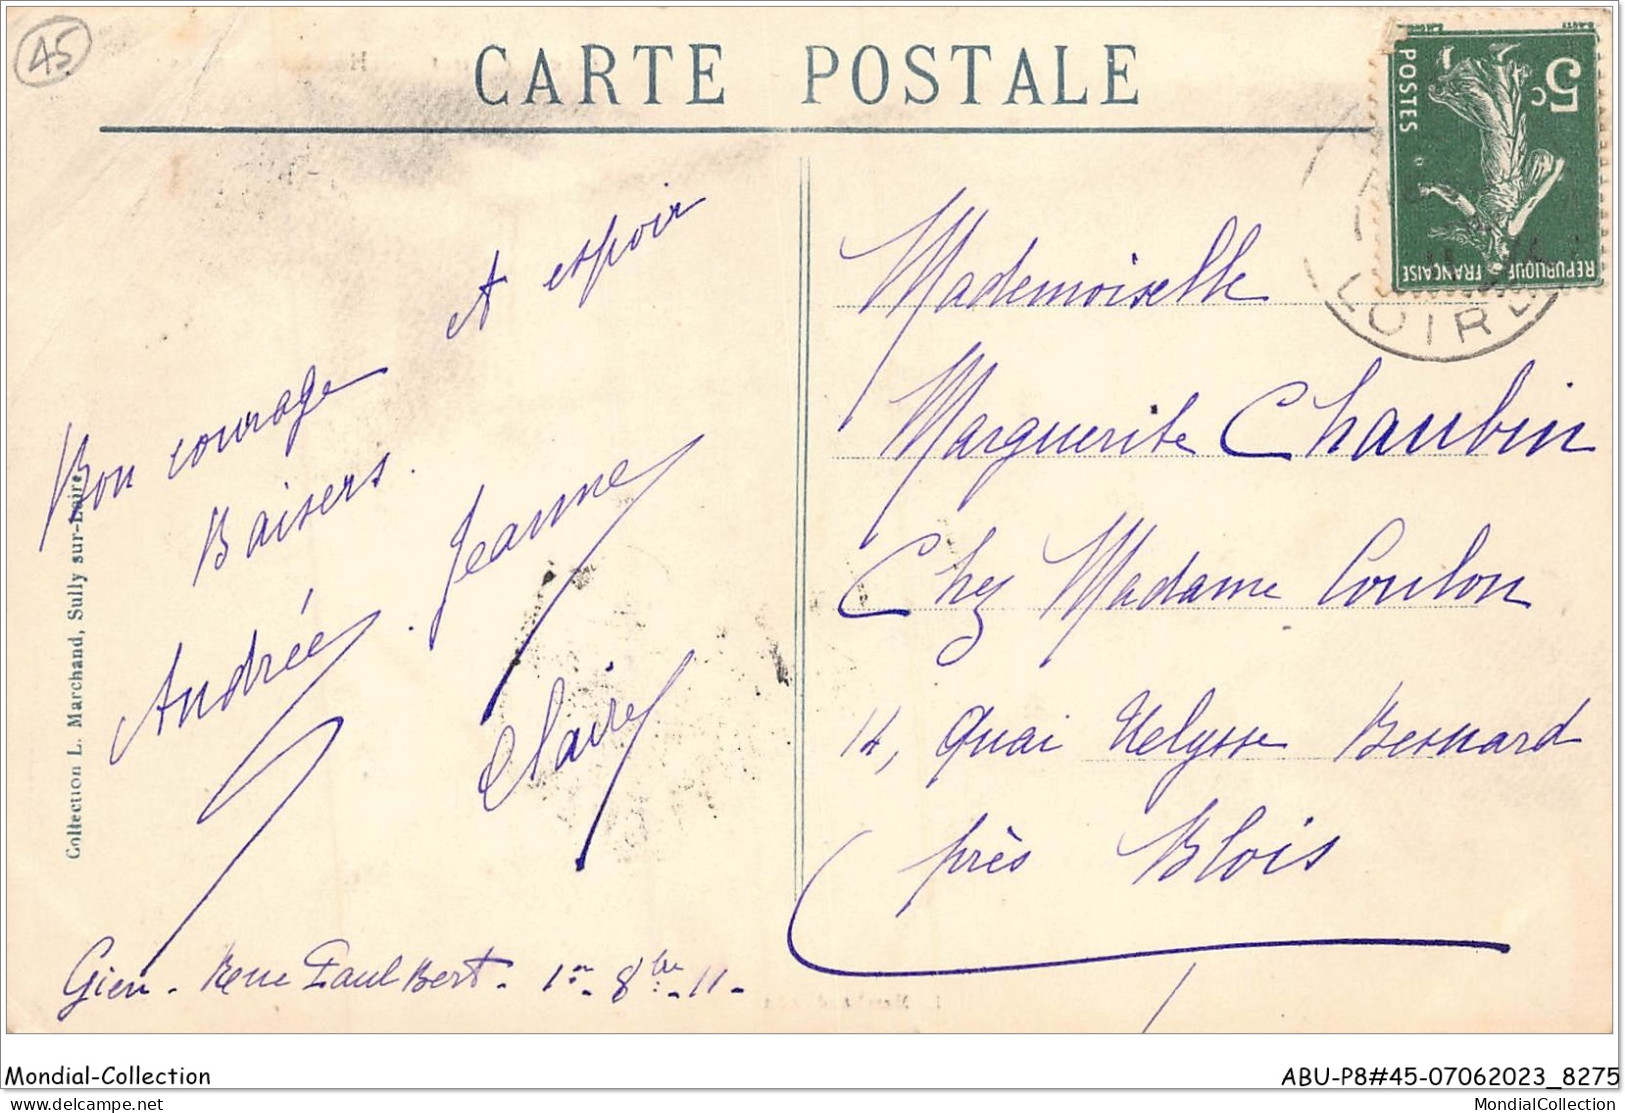 45
CARTE POSTALE
5c
POSTES
REPUBLIQUE FRANÇAISE
LOIRE
A espoir
Bon courage
Baisers.
Andrée. Jeanne
Claire
Gien - Rue Paul Bert - 1er - 8bre - 11 -
Collection L. Marchand, Sully sur-Loire
Mademoiselle
Marguerite Chaubin
Chez Madame Coulon
14, Quai Uelysse Besnard
près Blois
Mondial-Collection
ABU-P8#45-07062023_8275
https://www.delcampe.net
MondialCollection